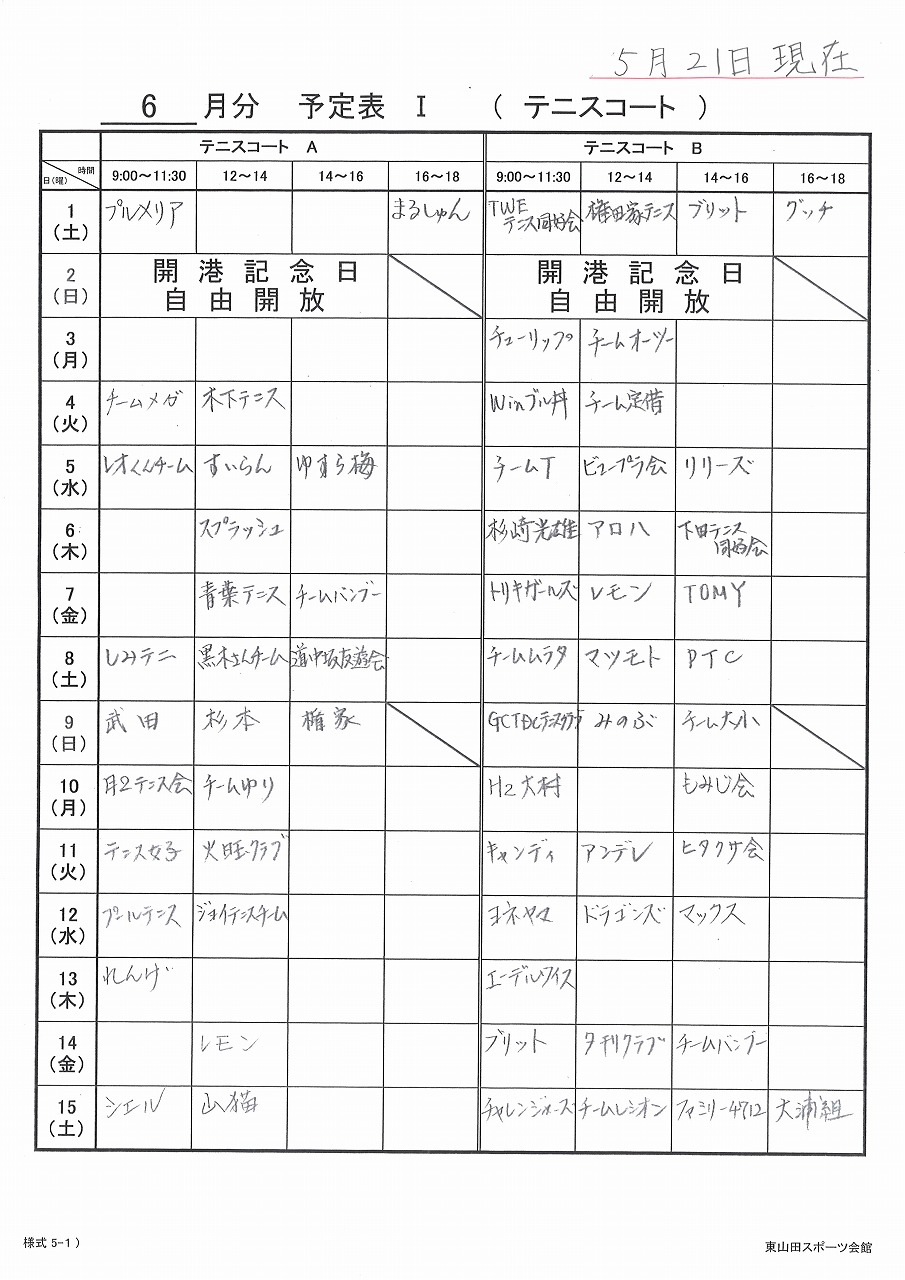 5月21日現在
6 月分 予定表 Ⅰ ( テニスコート )
テニスコート A テニスコート B
時間
日(曜) 9:00～11:30 12～14 14～16 16～18 9:00～11:30 12～14 14～16 16～18
1 プルメリア まるしゅん TWE 権田家テニス ブリット グッチ
(土) テニス同好会
2 開港記念日 開港記念日
(日) 自由開放 自由開放
3 チューリップ チームオーツー
(月)
4 チームメガ 木下テニス Winブル丼 チーム定借
(火)
5 レオくんチーム すいらん ゆすら梅 チームT ビュープラ会 リリーズ
(水)
6 スプラッシュ 杉崎光雄 アロハ 下田テニス
(木) 同好会
7 青葉テニス チームバンブー トリキガールズ レモン TOMY
(金)
8 しみテニ 黒木さんチーム 道中坂友遊会 チームムラタ マツモト PTC
(土)
9 武田 杉本 楯家 みのぶ チーム大小
(日)
10 月2テニス会 チームゆり H2大村 もみじ会
(月)
11 テニス女子 火旺クラブ キャンディ アンデレ ヒタクサ会
(火)
12 プールテニス ジョイテニスチーム ヨネヤマ ドラゴンズ マックス
(水)
13 れんげ エーデルワイス
(木)
14 レモン ブリット 夕刊クラブ チームバンブー
(金)
15 シエル 山猫 チャレンジャーズ チームレシオン ファミリー4712 大浦組
(土)
様式 5-1 )
東山田スポーツ会館